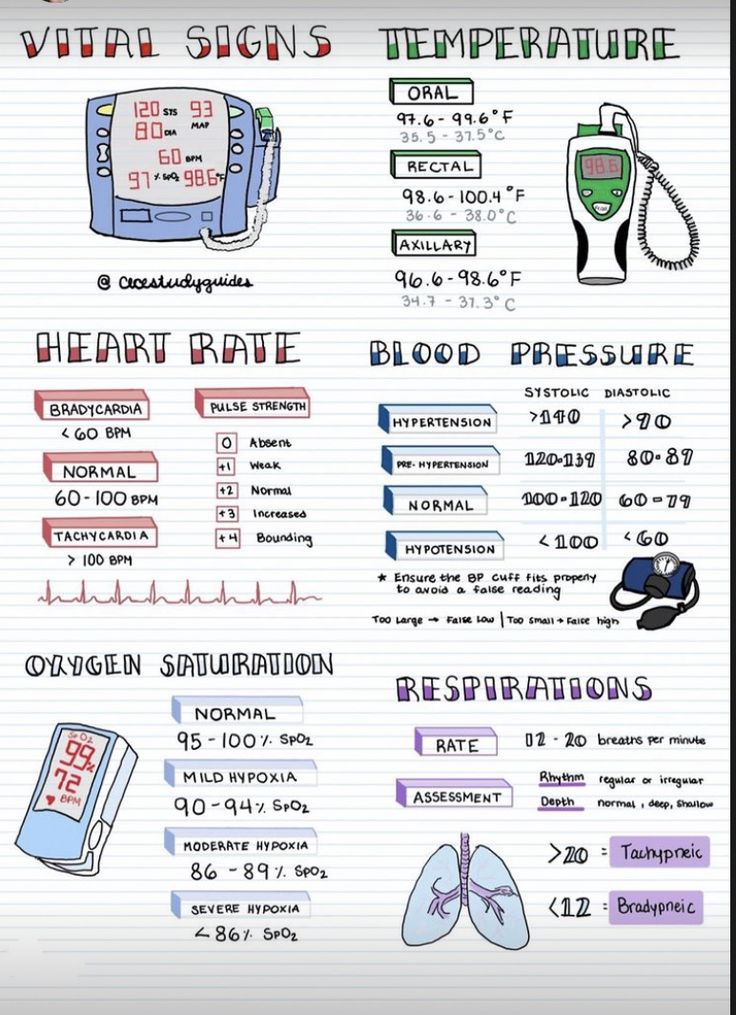 VITAL SIGNS
120 SYS 93
80 DIA MAP
60 BPM
97 % SpO2 98.6°F
@ cecestudyguides
TEMPERATURE
ORAL
97.6 - 99.6°F
35.5 - 37.5°C
RECTAL
98.6 - 100.4°F
36.6 - 38.0°C
AXILLARY
96.6 - 98.6°F
34.7 - 37.3°C
98.6
HEART RATE
BRADYCARDIA
< 60 BPM
NORMAL
60 - 100 BPM
TACHYCARDIA
> 100 BPM
PULSE STRENGTH
0 Absent
+1 Weak
+2 Normal
+3 Increased
+4 Bounding
BLOOD PRESSURE
SYSTOLIC DIASTOLIC
HYPERTENSION >140 >90
PRE-HYPERTENSION 120-139 80-89
NORMAL 100-120 60-79
HYPOTENSION <100 <60
★ Ensure the BP cuff fits properly
to avoid a false reading
Too Large → False Low | Too small → False high
OXYGEN SATURATION
SpO2
99%
72
BPM
NORMAL
95 - 100% SpO2
MILD HYPOXIA
90 - 94% SpO2
MODERATE HYPOXIA
86 - 89% SpO2
SEVERE HYPOXIA
< 86% SpO2
RESPIRATIONS
RATE 12 - 20 breaths per minute
ASSESSMENT
Rhythm regular or irregular
Depth normal, deep, shallow
>20 = Tachypneic
<12 = Bradypneic